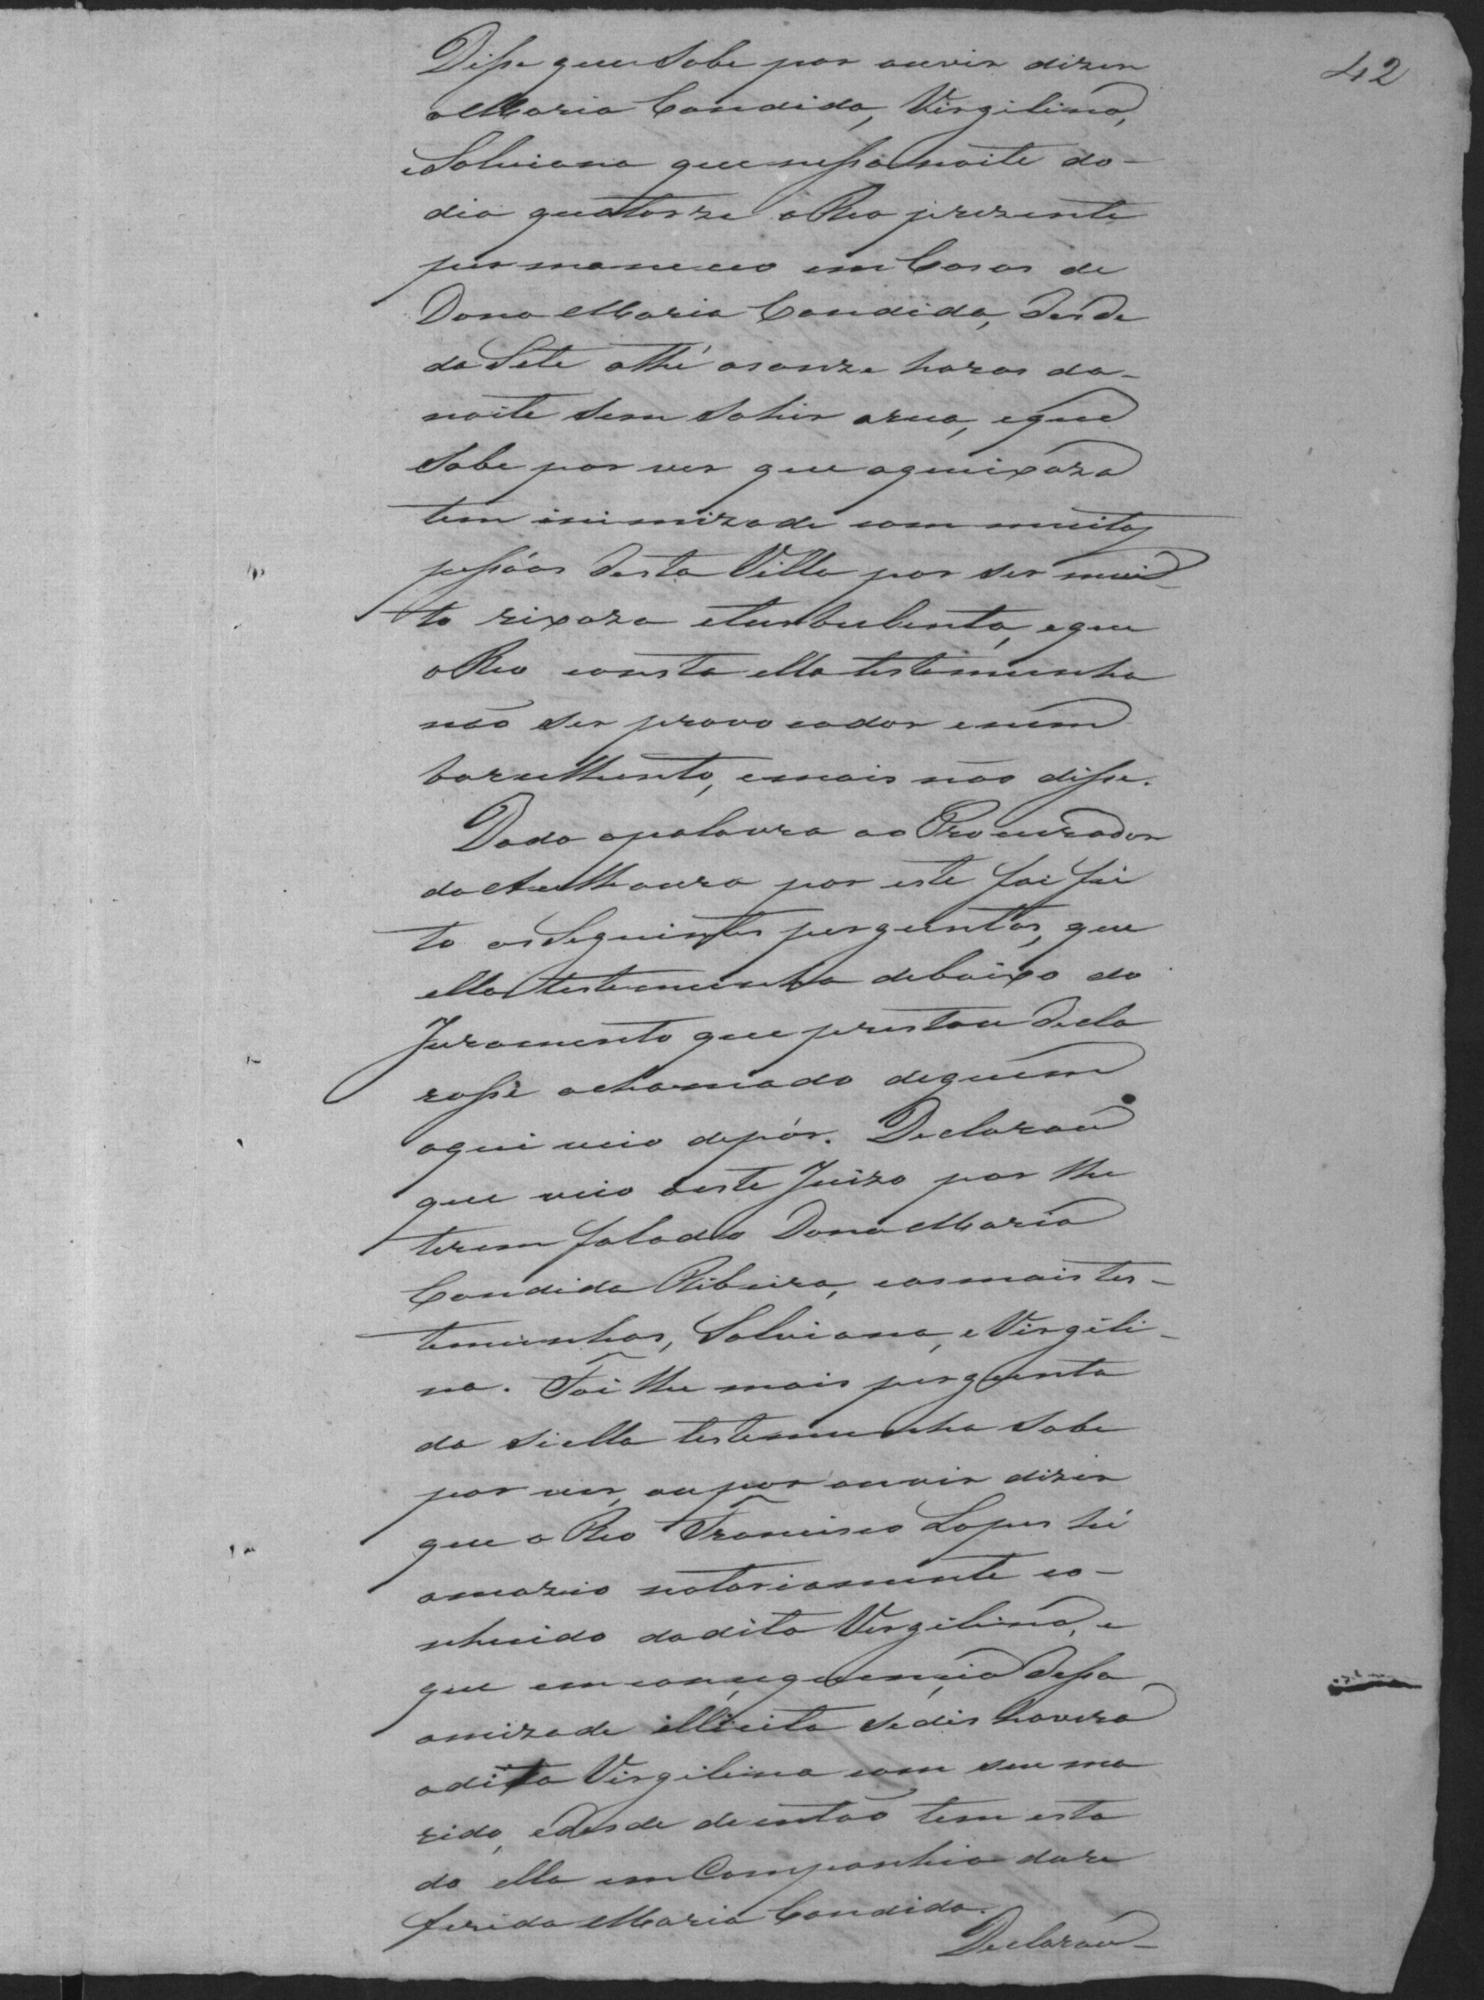 42
Disse que sabe por ouvir dizer
a Maria Candida, Virgilina,
e Salviana que nessa noite do
dia quatorze o Reo prezente
permaneceo em Casas de
Dona Maria Candida, desde
da Sete athé as onze horas da
noite sem sahir a rua, e que
sabe por ver que a queixoza
tem inimizade com muitas
pessôas desta Villa por ser mui
to rixoza e turbulenta, e que
o Reo consta ella testemunha
não ser provocador e nem
barulhento, e mais não disse.
Dada a palavra ao Procurador
da Authoura por este foi fei
to as seguintes perguntas, que
ella testemunha debaixo do
Juramento que prestou decla
rasse a chamado de quem
aqui veio depôr. Declarou
que veio a este Juizo por lhe
terem falado Dona Maria
Candida Ribeira, e as mais tes-
temunhas, Salviana, e Virgili-
na. Foi lhe mais pergunta
do si ella testemunha sabe
por ver, ou por ouvir dizer
que o Reo Francisco Lopes hé
amazio notoriamente co-
nhecido da dita Virgilina, e
que em consequencia dessa
amizade illicita se dishavera
a dita Virgilina com seu ma
rido, e desde de então tem esta
do ella em Companhia da re
ferida Maria Candida.
Declarou-